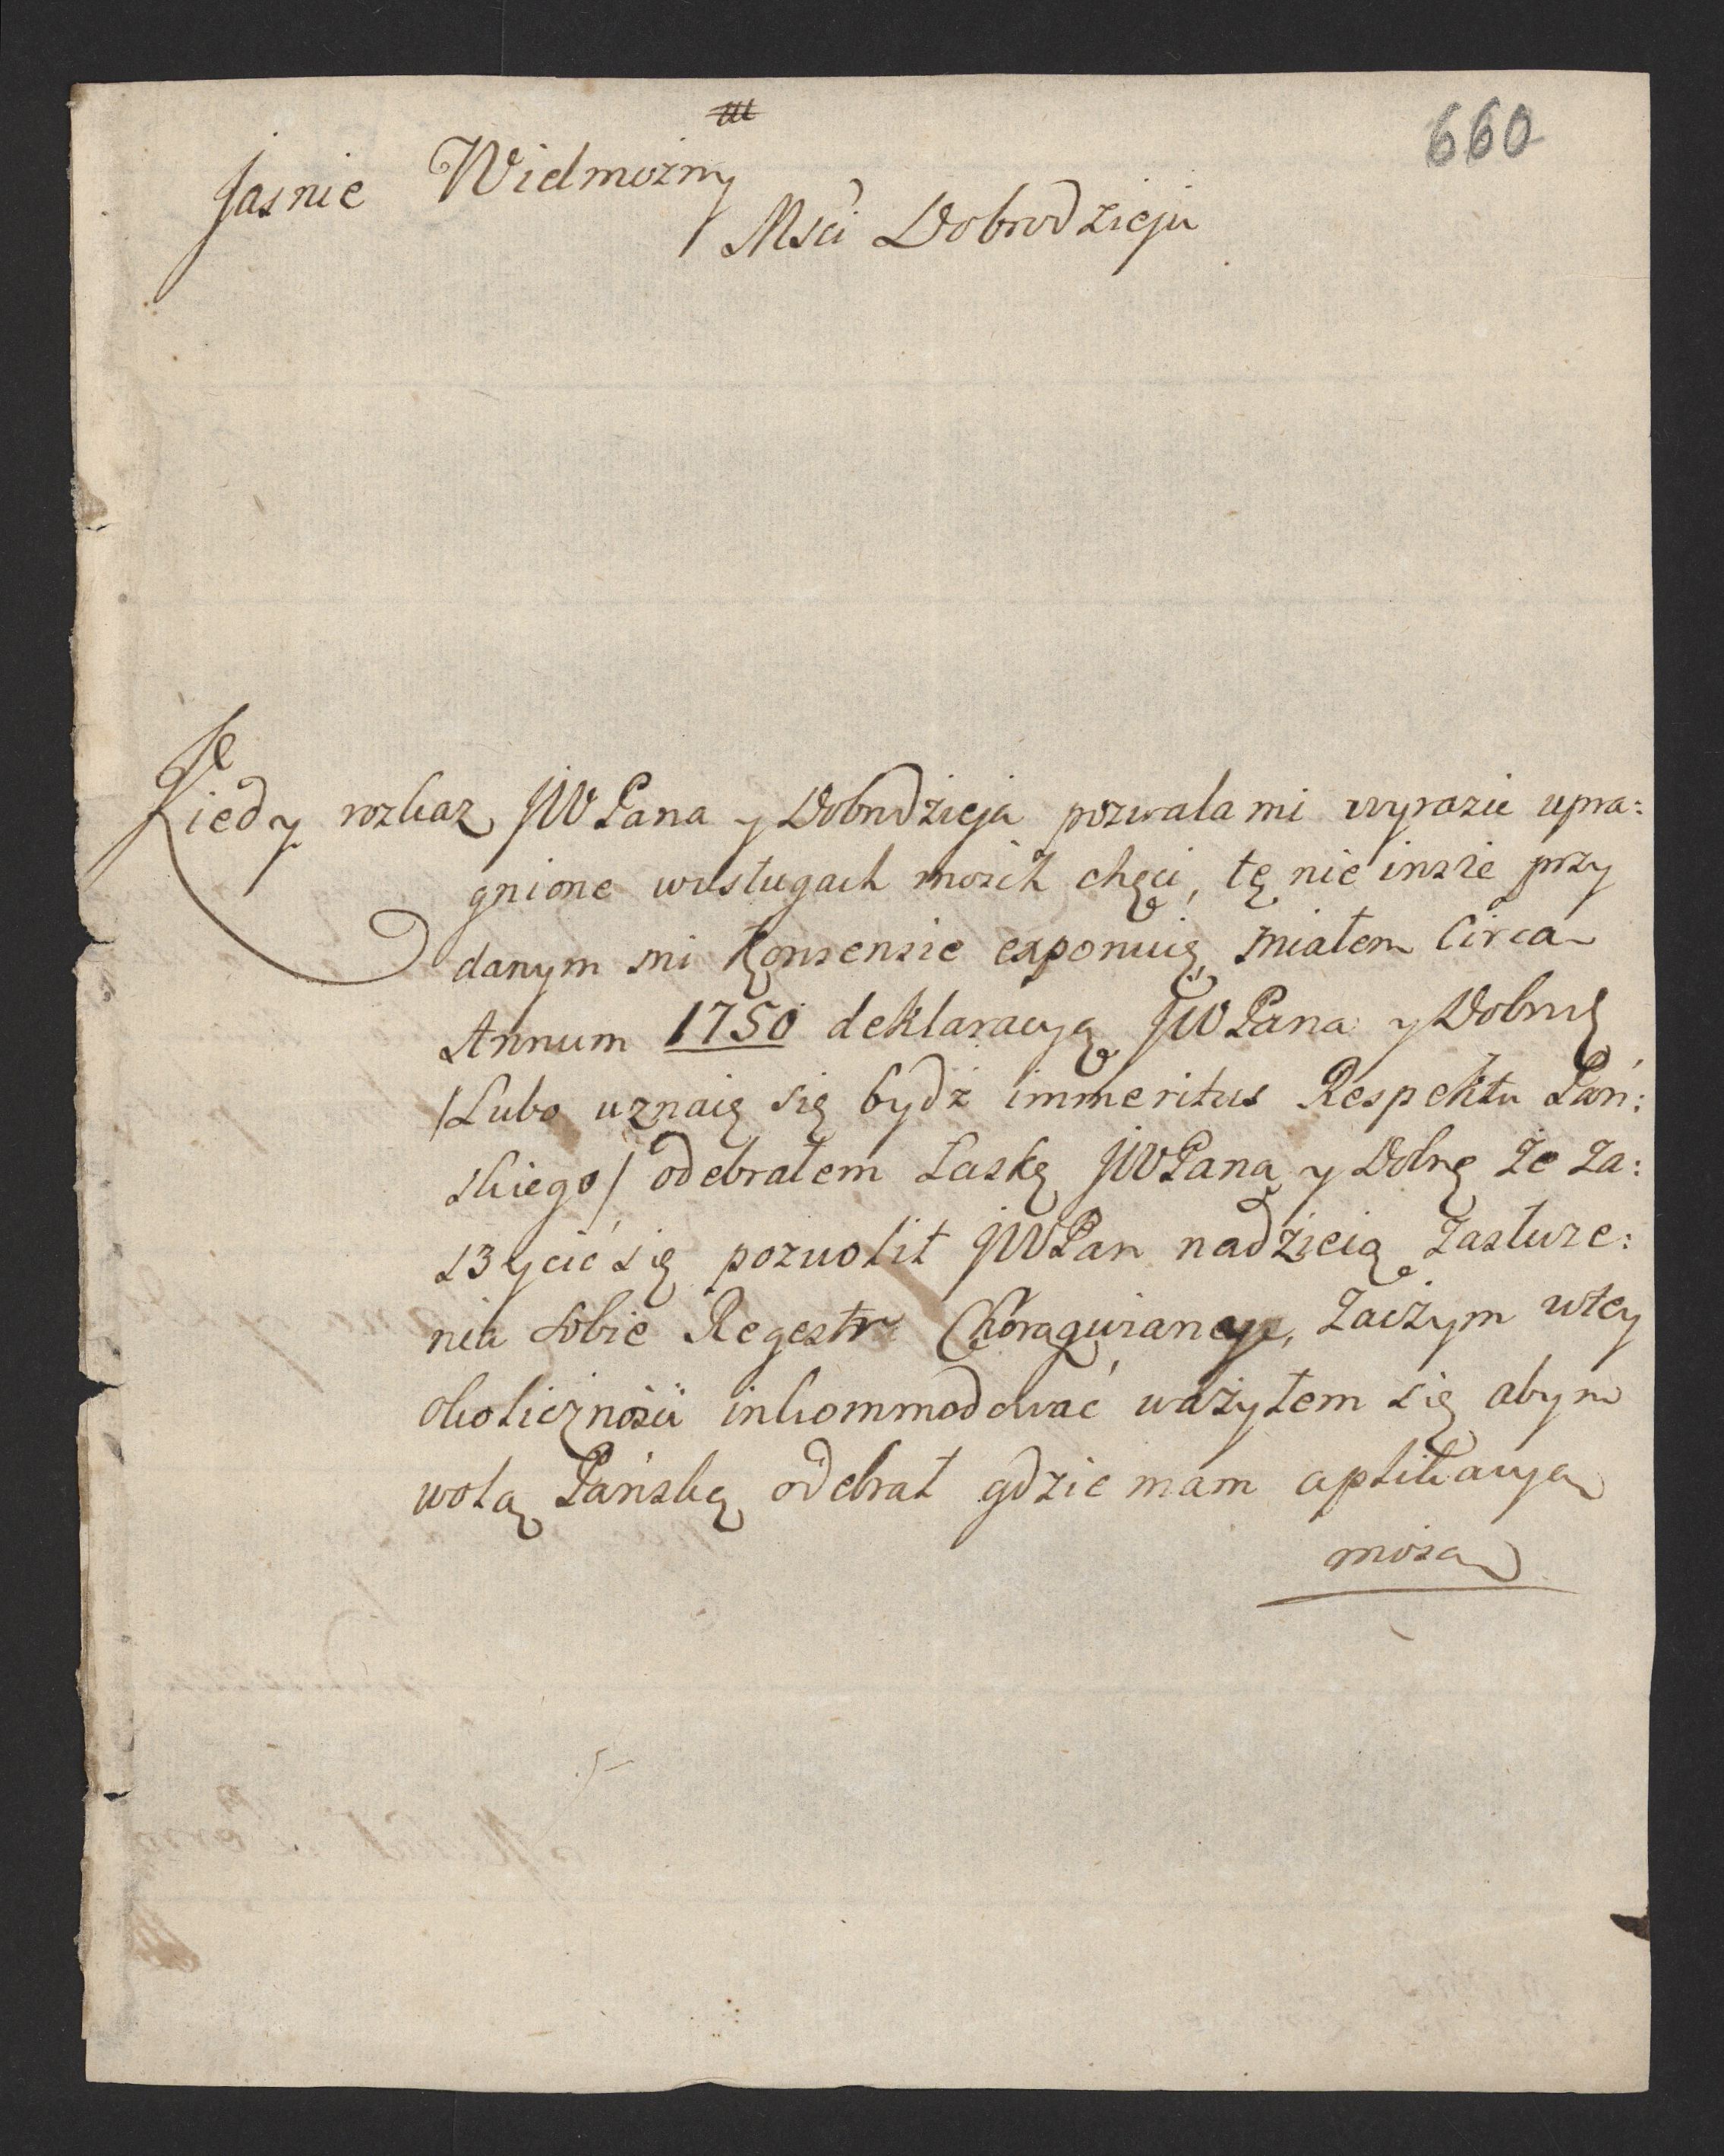 660
Jasnie Wielmożny
Mści Dobrodzieju
Kiedy rozkaz JWPana y Dobrodzieja pozwala mi wyrazic upra:
gnione wusługach moich chęci, tę nie insze przy
danym mi konsensie exponuię, miałem Circa
Annum 1750 deklaracyą JWPana y Dobrd
/Lubo uznaię się bydź immeritus Respektu Pań:
skiego/ odebrałem Łaskę JWPana y Dobrę że za:
szycić się pozwolił JWPan nadzieią zasłuże:
nia sobie Regestr Chorągwiany, zaczym wtey
okoliczności inkommodować ważyłem się abym
wolą Pańską odebrał gdzie mam aplikacyą
moią